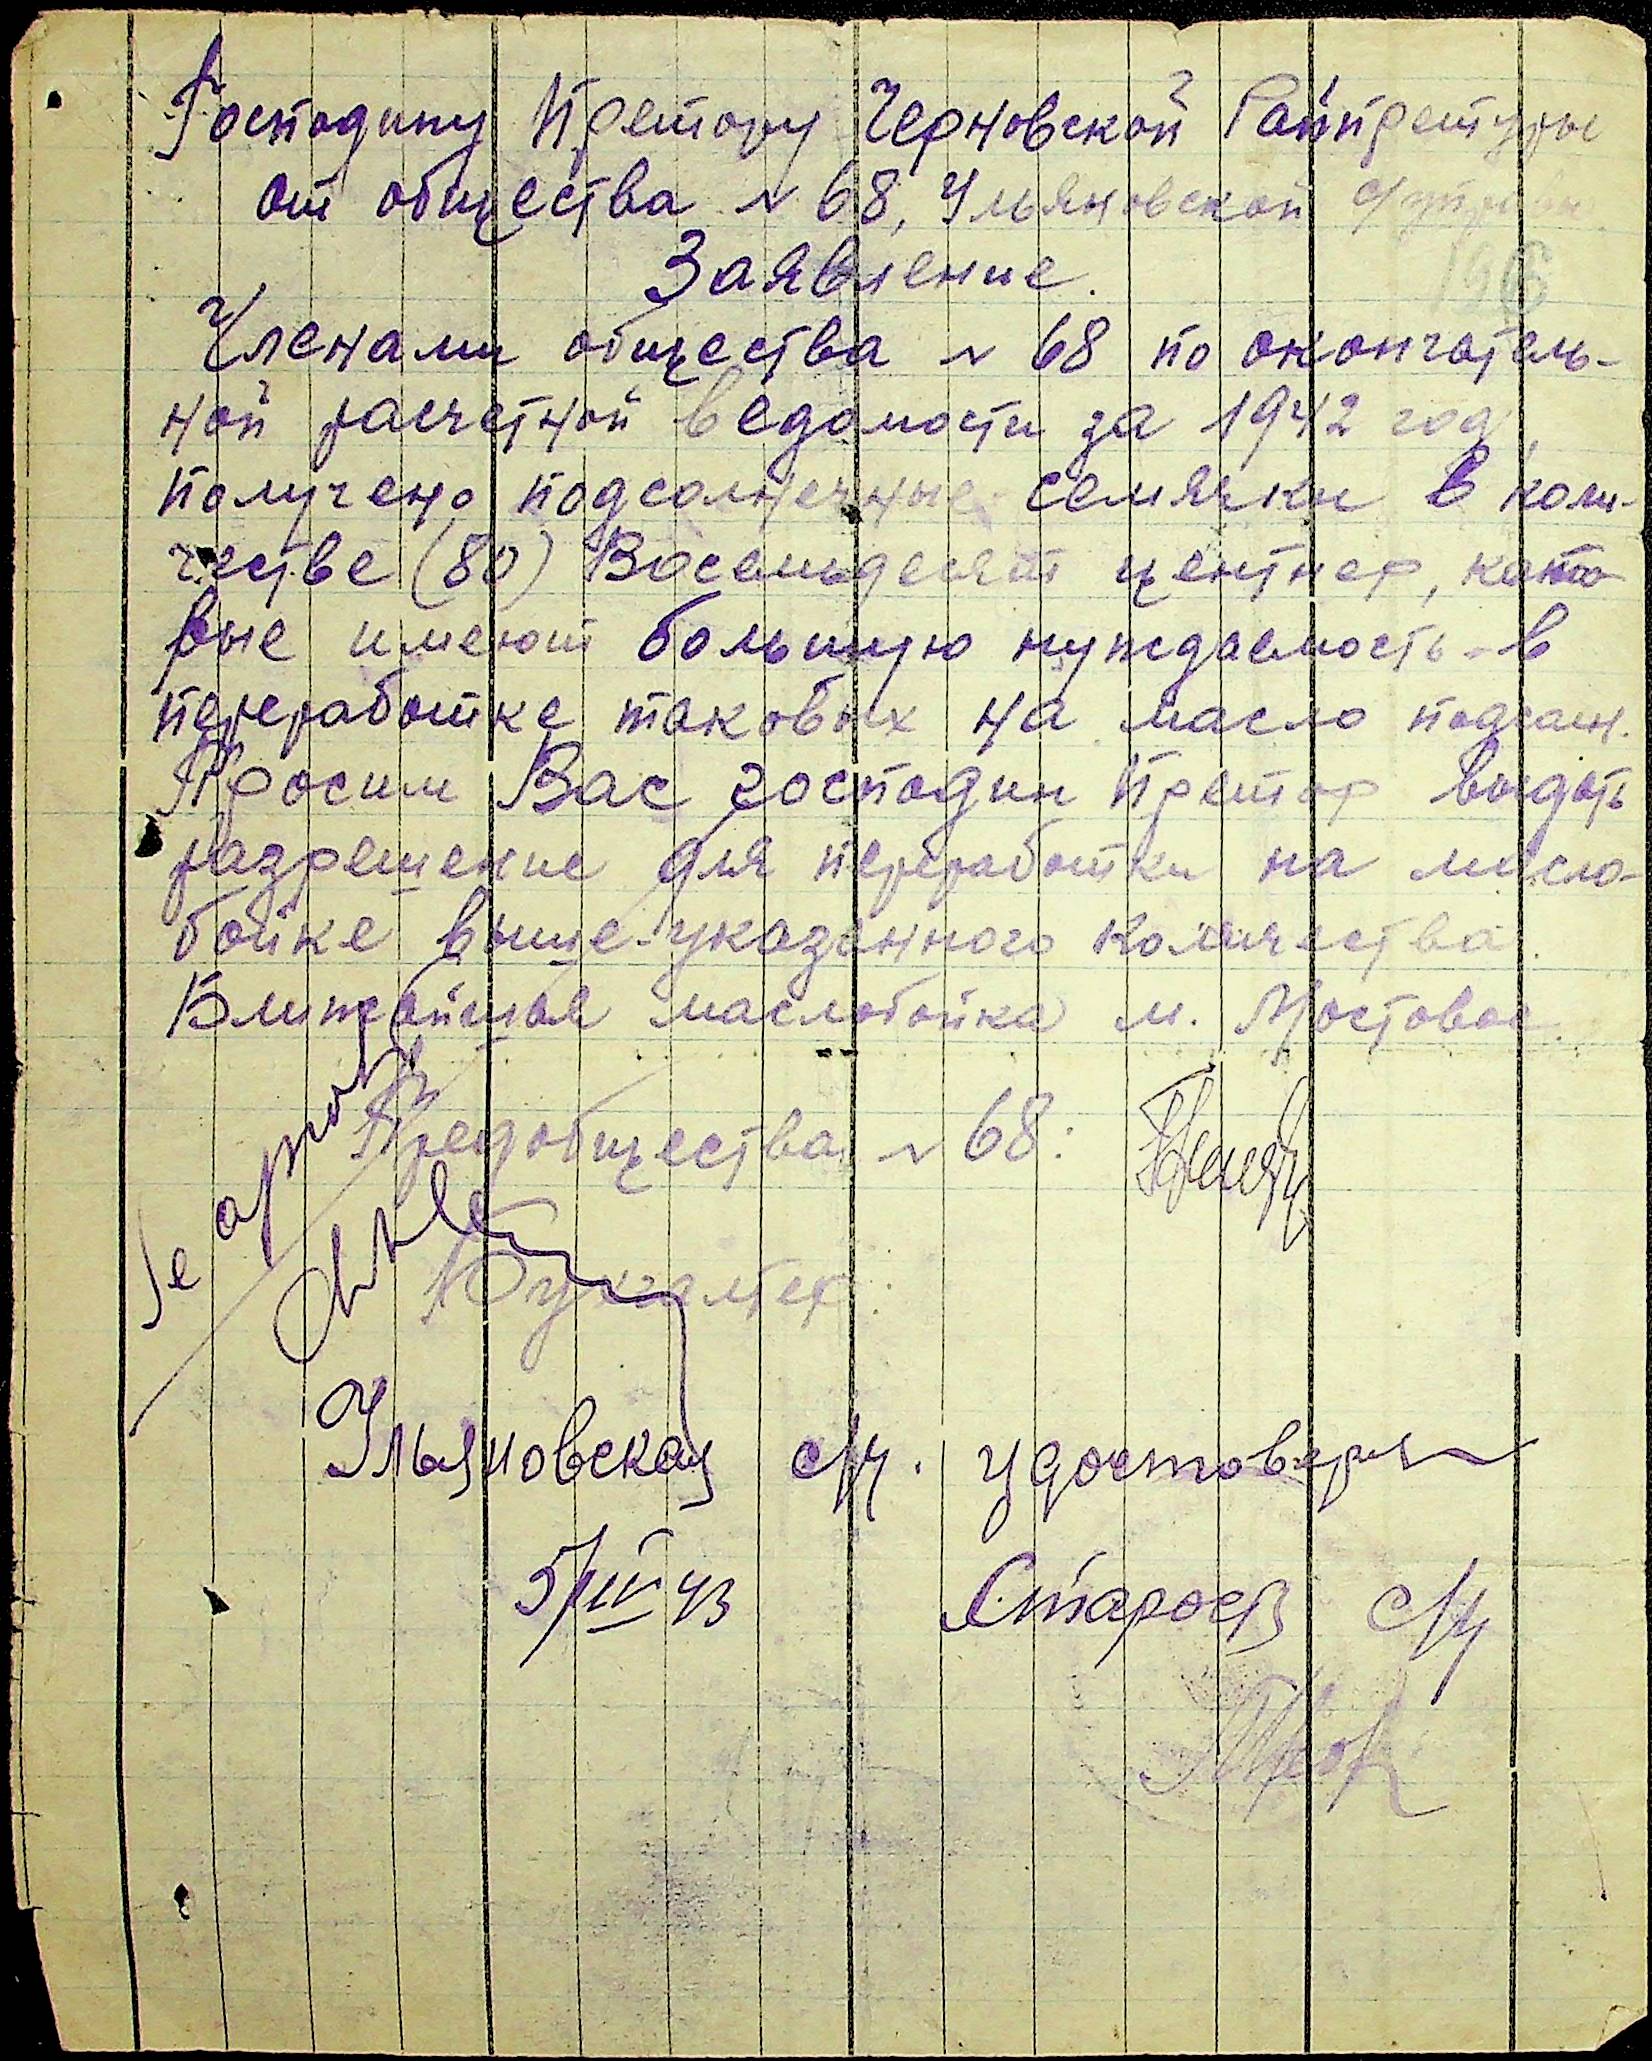 Господину Претору Черновской Райпретуры
от общества № 68, Ульяновской
Заявление.
196
Членами общества № 68 по окончатель-
ной расчетной ведомости за 1942 год,
получено подсолнечные семячки в коли-
честве (80) Восемьдесят центнер, кото
рые имеют большую нуждаемость в
переработке таковых на масло подсолн.
Просим Вас господин Претор выдать
разрешение для переработки на масло-
бойке выше-указанного количества.
Ближайшая маслобойка м. Мостовое.
Предобщества № 68:
Se aprobă
Бухгалтер:
Ульяновская с/у. удостоверя
5/III 43 Староста с/у